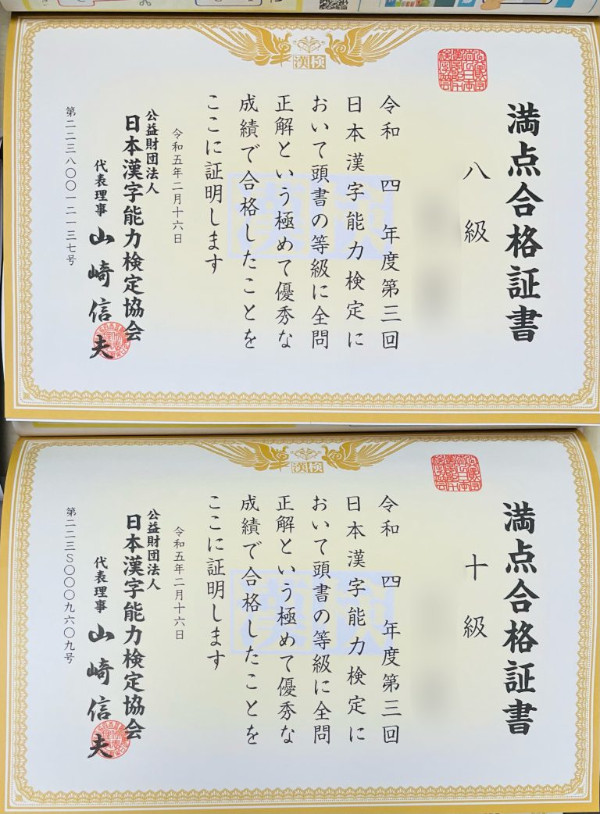 漢検
満点合格証書
八級
令和四年度第三回
日本漢字能力検定に
おいて頭書の等級に全問
正解という極めて優秀な
成績で合格したことを
ここに証明します
令和五年二月十六日
公益財団法人
日本漢字能力検定協会
代表理事 山崎信夫
第二二三八〇〇一二一三七号
漢検
満点合格証書
十級
令和四年度第三回
日本漢字能力検定に
おいて頭書の等級に全問
正解という極めて優秀な
成績で合格したことを
ここに証明します
令和五年二月十六日
公益財団法人
日本漢字能力検定協会
代表理事 山崎信夫
第二二三S〇〇〇九六〇九号